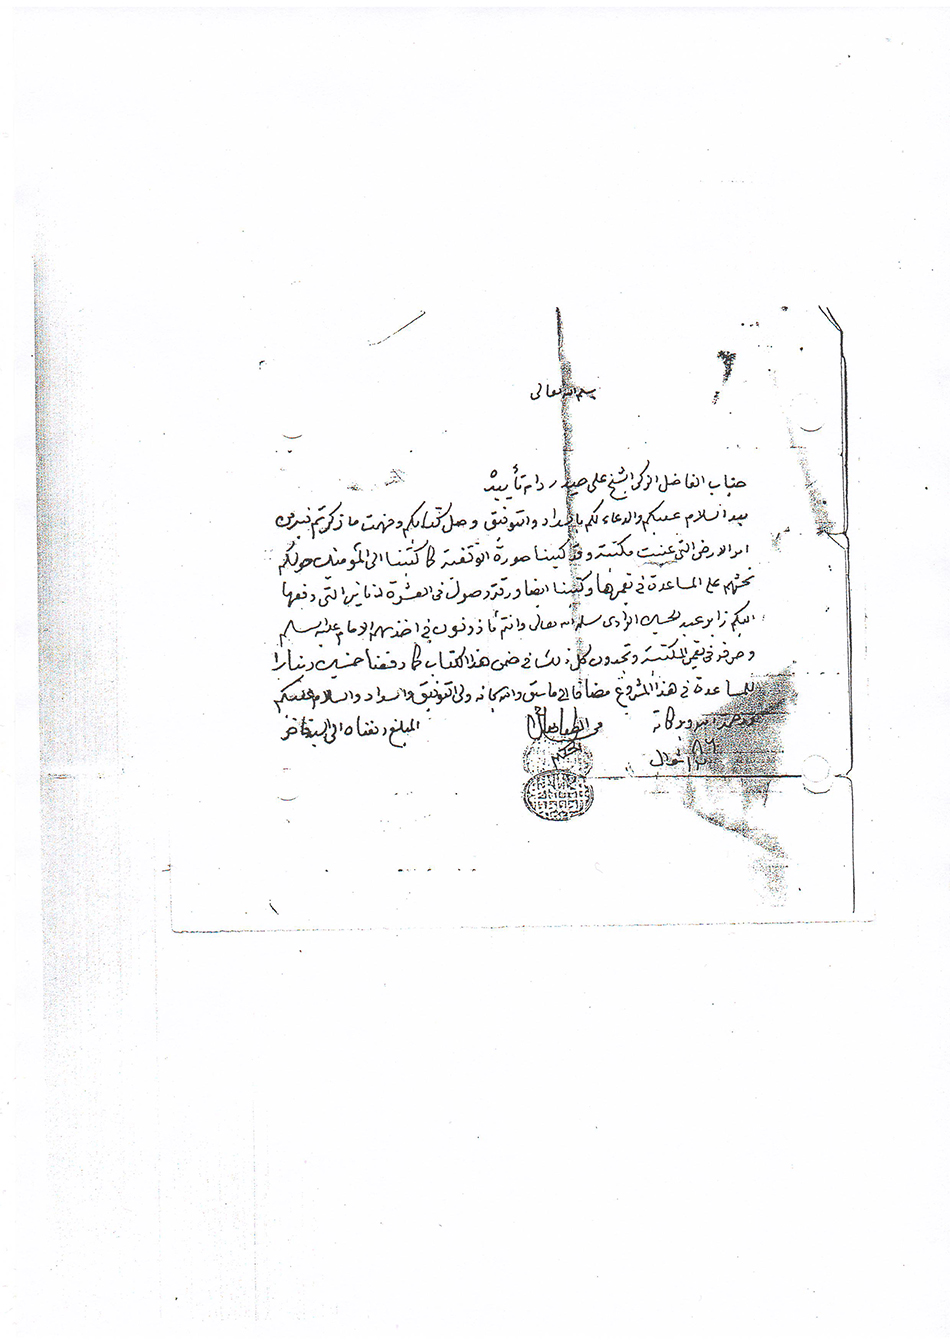 بسم الله تعالى
جناب الفاضل الزكي الشيخ علي حيدر دام تأييده
بعد السلام عليكم والدعاء لكم بالسداد والتوفيق وصل كتابكم وفهمت ما ذكرتم فيه من
امر الارض التي عينت مكتبة وقد كتبنا صورة الوقفية كما كتبنا الى المؤمنين حولكم
نحثهم على المساعدة في تعميرها وكتبنا ايضا ورقة وصول في العشرة دنانير التي دفعها
اليكم عبد الحسين سلمه الله تعالى وانتم مأذونون في اخذ سهم الامام عليه السلام
وصرفه في تعمير المكتبة وتجدون كل ذلك في ضمن هذا الكتاب كما دفعنا خمسين دينارا
للمساعدة في هذا المشروع مضافا الى ما سبق والله سبحانه ولي التوفيق والسداد والسلام عليكم
ورحمة الله وبركاته
محسن الطباطبائي
الحكيم
المبلغ دفعناه الى السيد
شوال